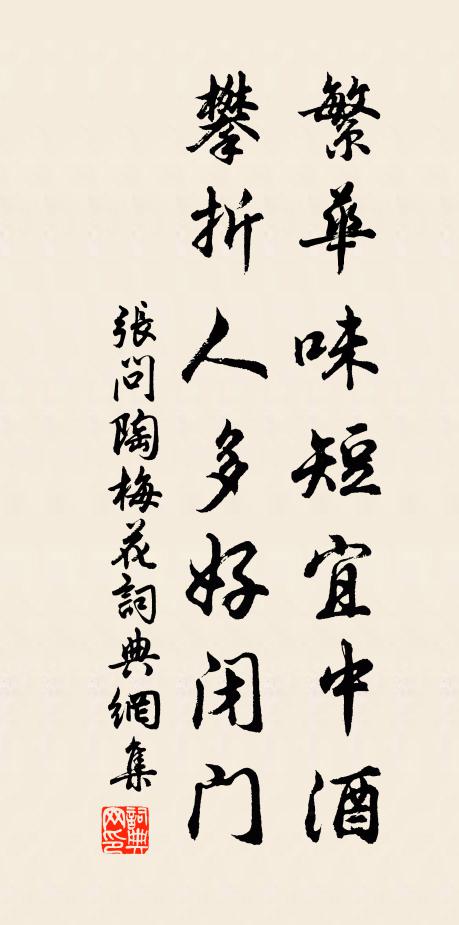 繁華味短宜中酒
攀折人多好闭门
張问陶梅花詞典網集
詞典网印